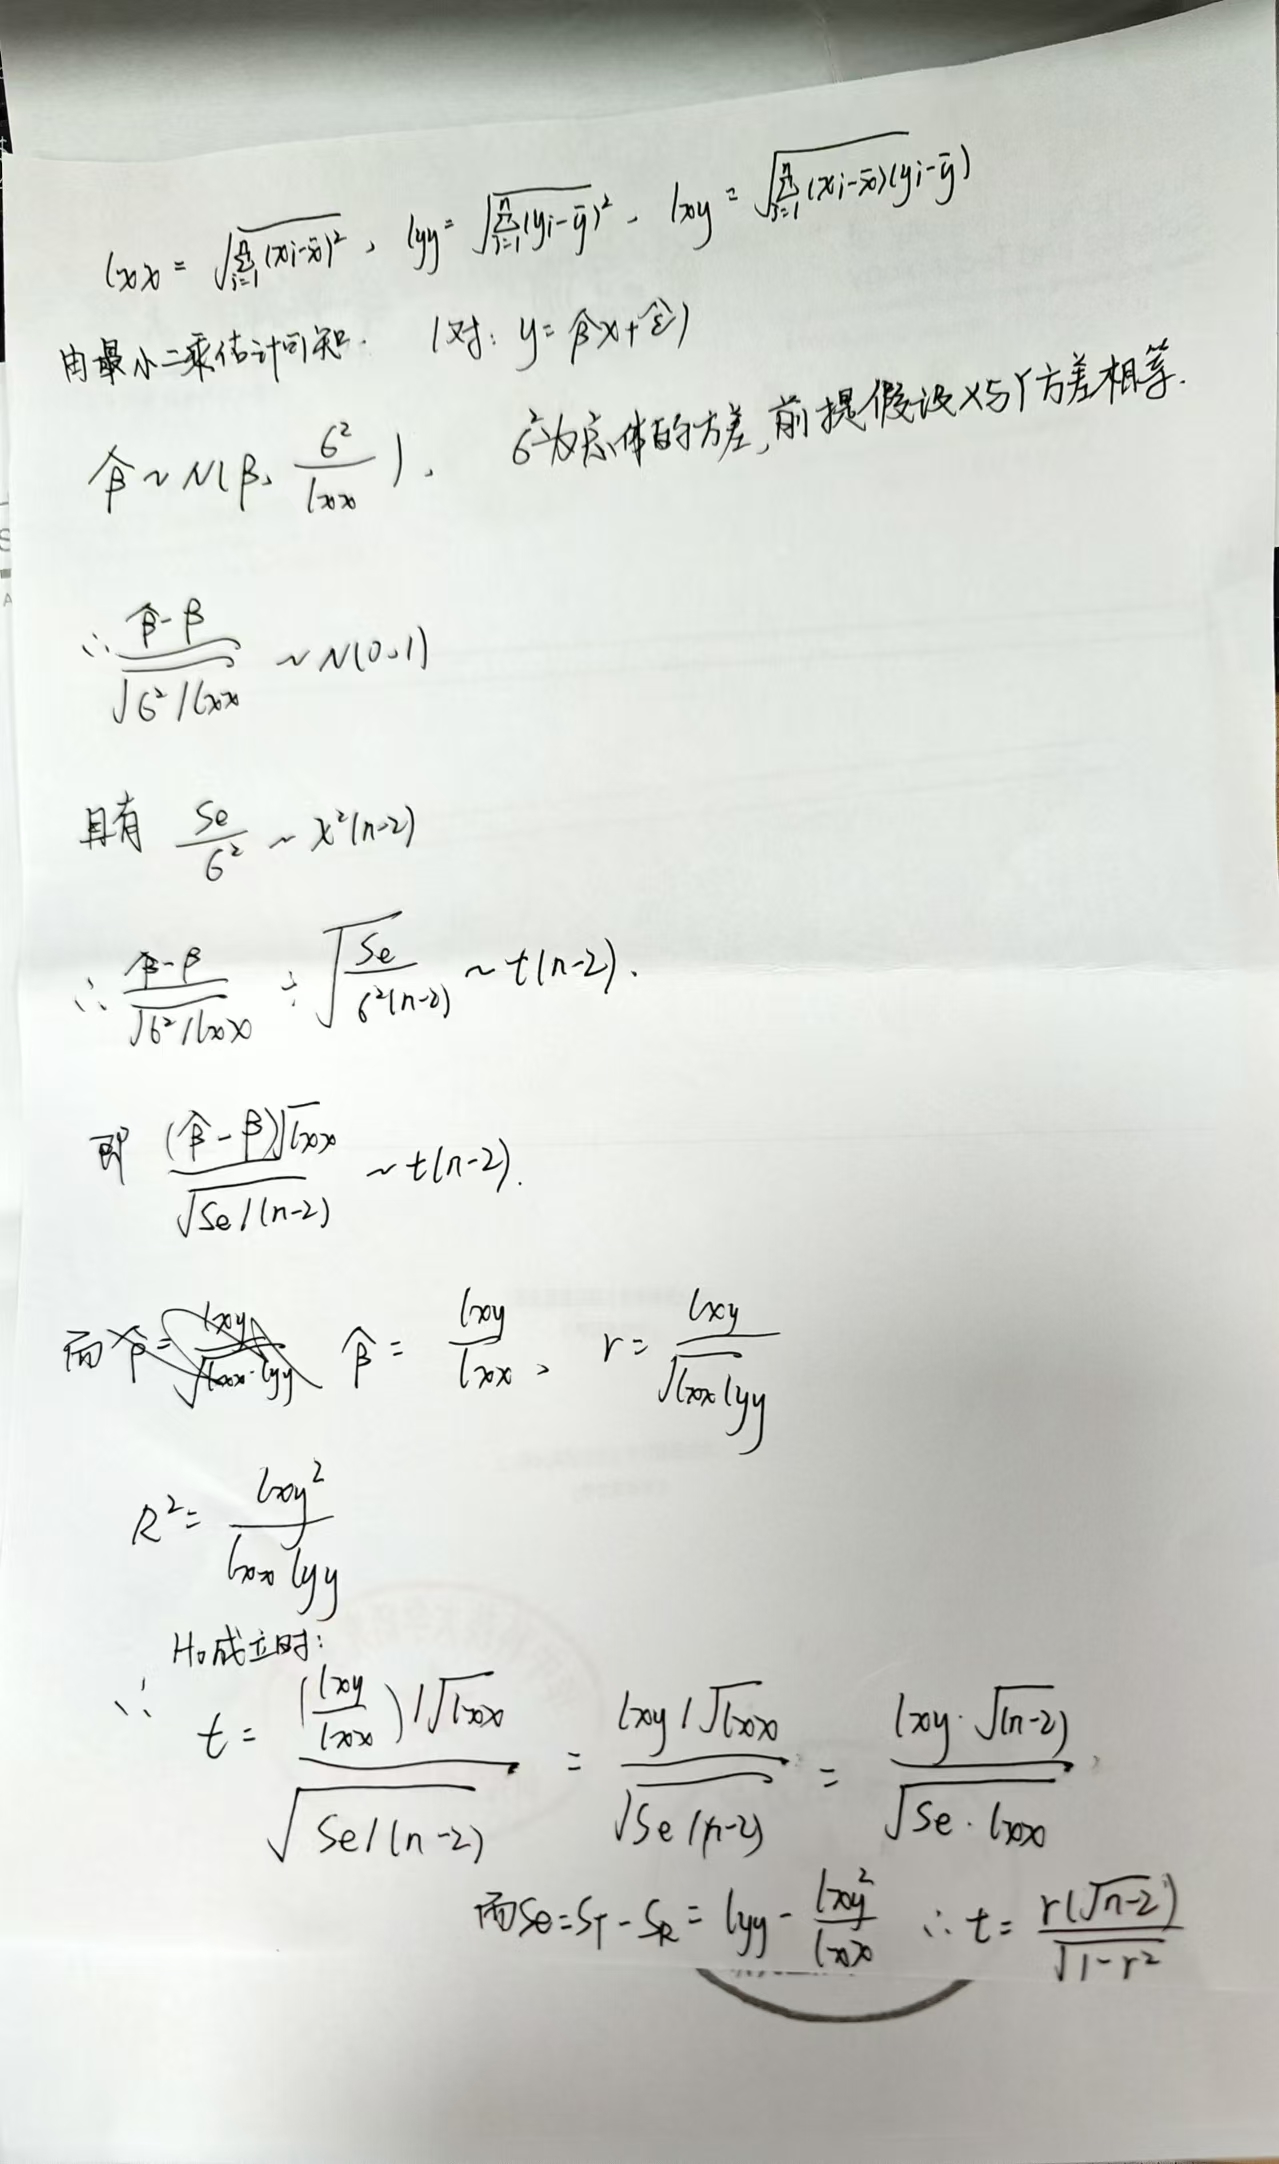 lxx = √(∑_{i=1}^{n}(xi-x̄)²), lyy = √(∑_{i=1}^{n}(yi-ȳ)²), lxy = √(∑_{i=1}^{n}(xi-x̄)(yi-ȳ))
由最小二乘估计可知. (对: y = β̂x + ε̂)
β̂ ~ N(β, σ²/lxx), σ²为总体的方差,前提假设X与Y方差相等.
∴ (β̂-β)/√(σ²/lxx) ~ N(0,1)
且有 Se/σ² ~ χ²(n-2)
∴ (β̂-β)/√(σ²/lxx) ÷ √(Se/(σ²(n-2))) ~ t(n-2).
即 (β̂-β)√lxx / √(Se/(n-2)) ~ t(n-2).
而 β̂ = lxy/lxx, r = lxy/√(lxx lyy)
R² = lxy²/(lxx lyy)
H₀成立时:
∴ t = (lxy/lxx)/√lxx / √(Se/(n-2)) = lxy/√lxx / √(Se/(n-2)) = lxy·√(n-2) / √(Se·lxx)
而Se = S_T - S_R = lyy - lxy²/lxx ∴ t = r(√n-2)/√(1-r²)